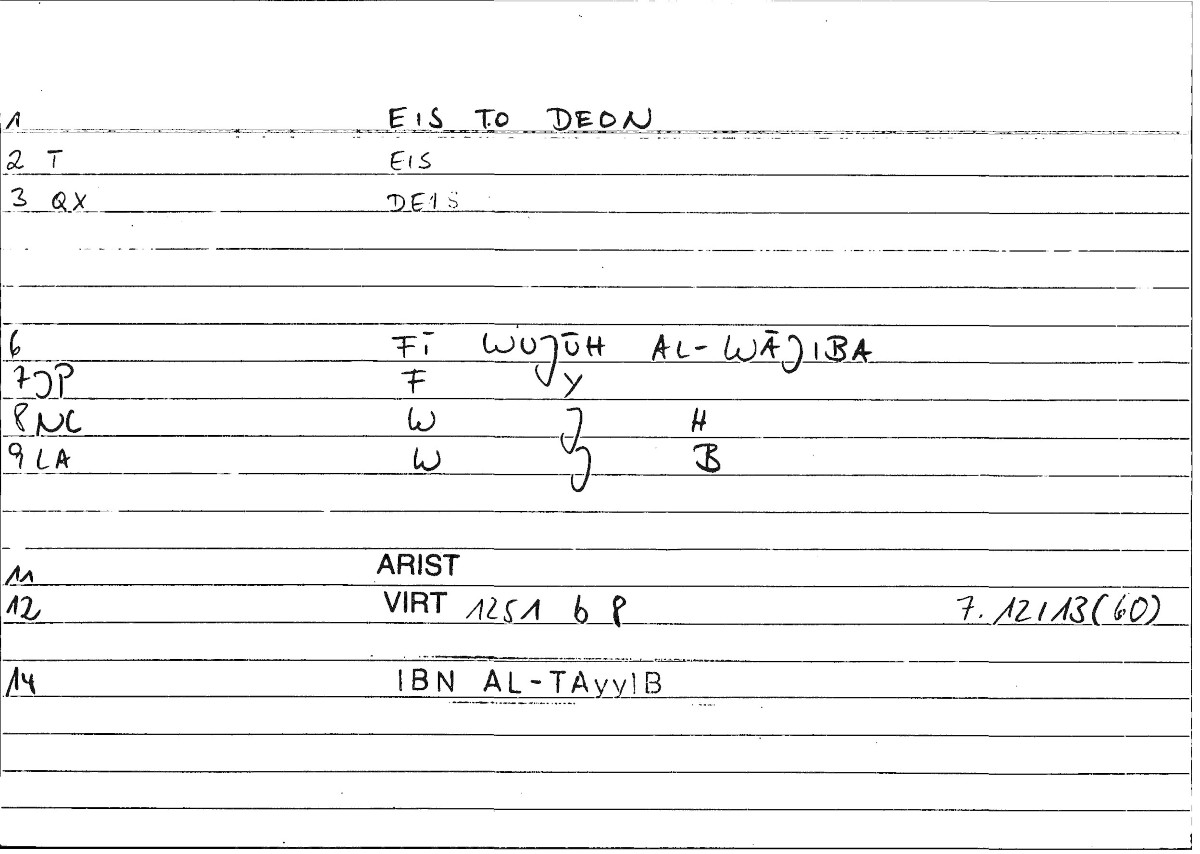 1 EIS TO DEON
2 T EIS
3 QX DE1S
6 FĪ WUJŪH AL-WĀJIBA
7JP F Y
8NC W J H
9LA W J B
11 ARIST
12 VIRT 1251 b 8 7.12/13(60)
14 IBN AL-TAyyIB